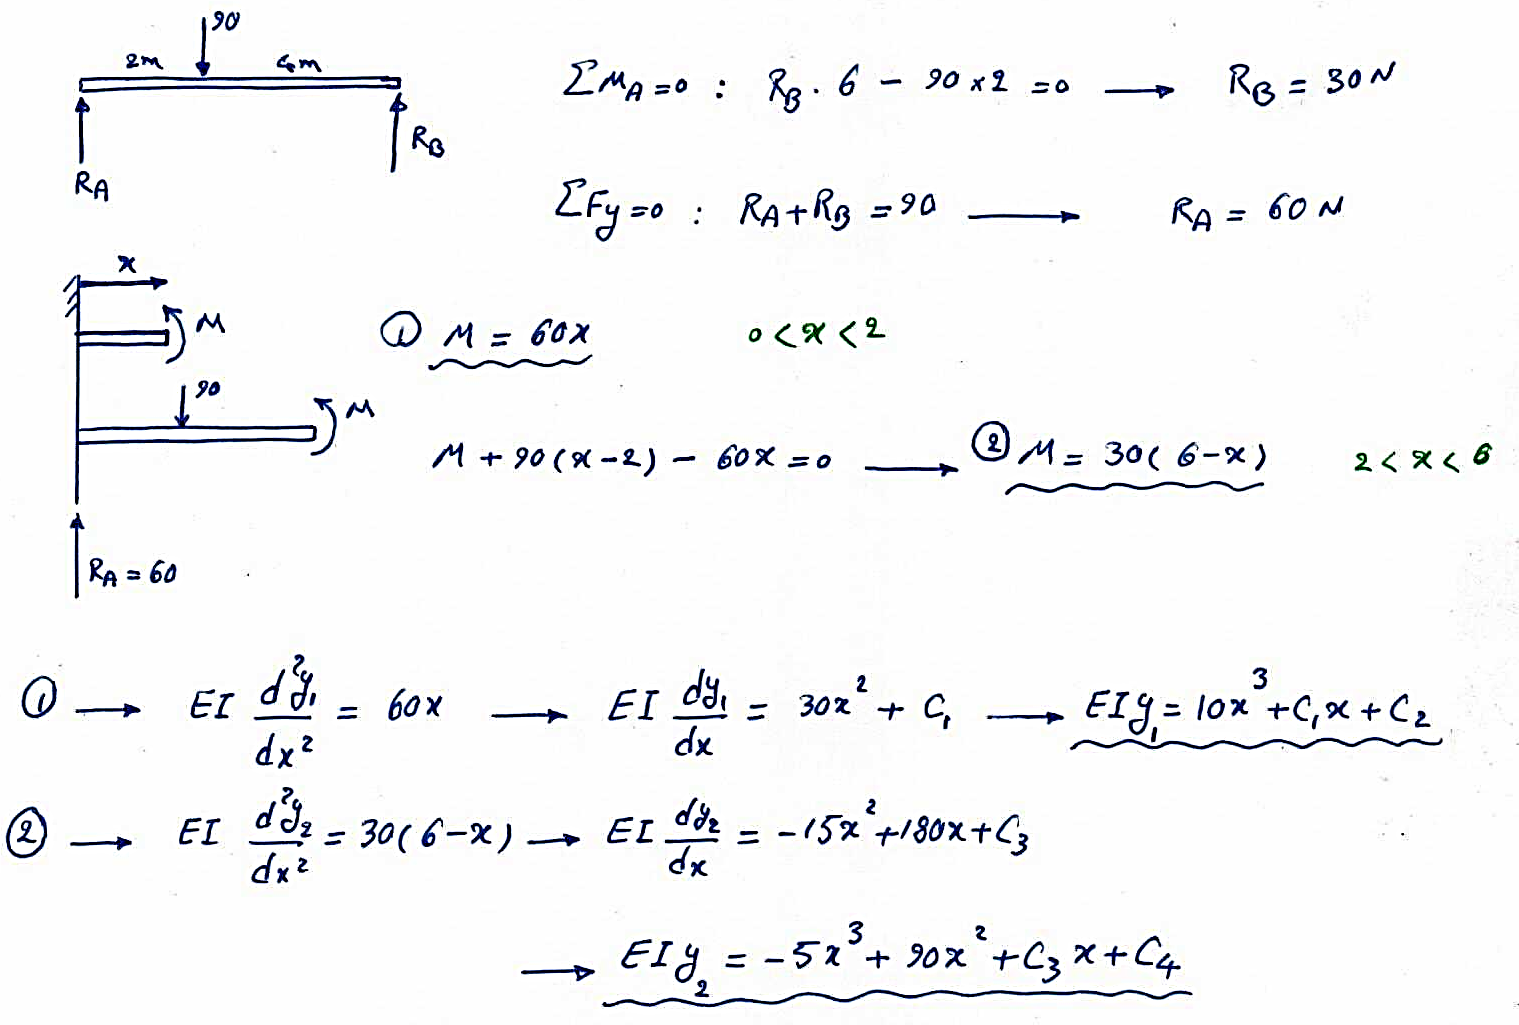 90
2m 4m
R_A R_B
ΣM_A=0 : R_B · 6 - 90×2 =0 → R_B = 30 N
ΣFy=0 : R_A+R_B =90 → R_A = 60 N
x
M
① M = 60x 0<x<2
90 M
M + 90(x-2) - 60x =0 → ② M= 30(6-x) 2<x<6
R_A = 60
① → EI d²y₁/dx² = 60x → EI dy₁/dx = 30x² + C₁ → EIy₁= 10x³+C₁x+C₂
② → EI d²y₂/dx² = 30(6-x) → EI dy₂/dx = -15x²+180x+C₃
→ EIy₂ = -5x³+ 90x²+C₃x+C₄